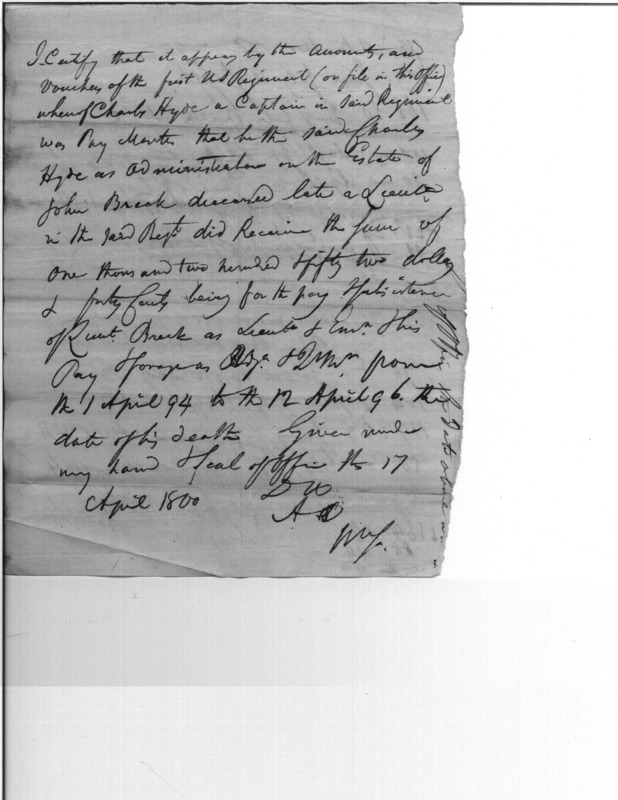 I Certify that it appears by the Accounts, and
vouchers of the first US Regiment (on file in this Office)
whereof Charles Hyde a Captain in said Regiment
was Pay Master that he the said Charles
Hyde as Administrator on the Estate of
John Breck deceased late a Lieut.
in the said Regt. did Receive the Sum of
One thousand two hundred & fifty two dollars
& forty Cents being for the pay & subsistence
of Lieut. Breck as Lieut. & Ensn. & his
Pay & forage as Adjt. & QrMr. from
the 1 April 94 to the 12 April 96 the
date of his death Given under
my hand & Seal of Office the 17
April 1800